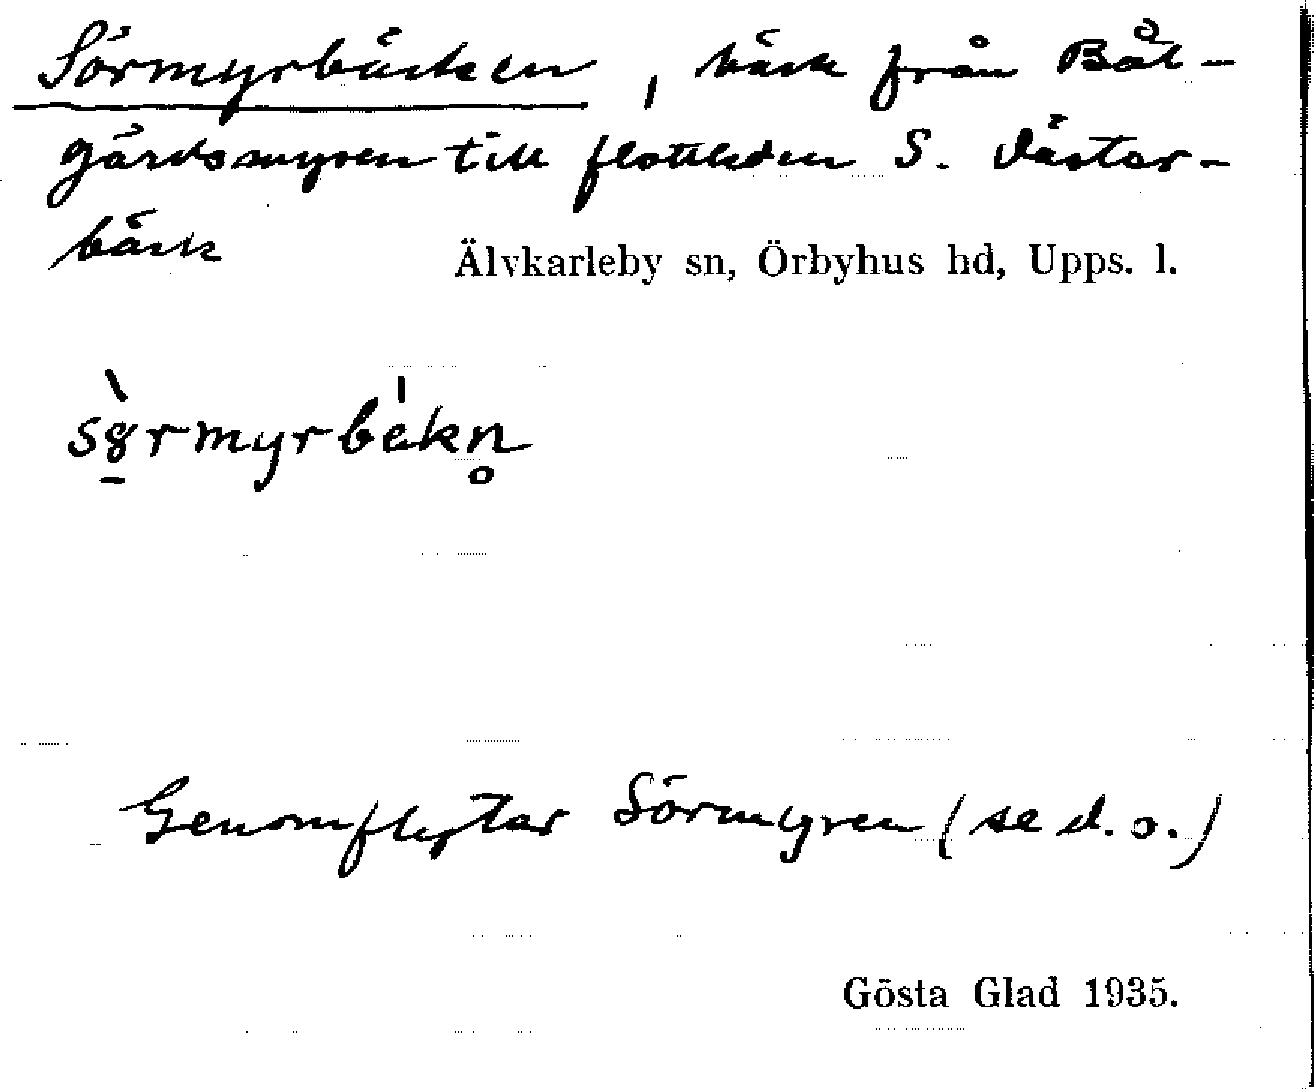 Sörmyrbäcken, bäck från Bål-
gårdsmyren till flottleden S. Väster-
bäck
Älvkarleby sn, Örbyhus hd, Upps. l.
Genomflytar Sörmyren (se d. o.)
Gösta Glad 1935.